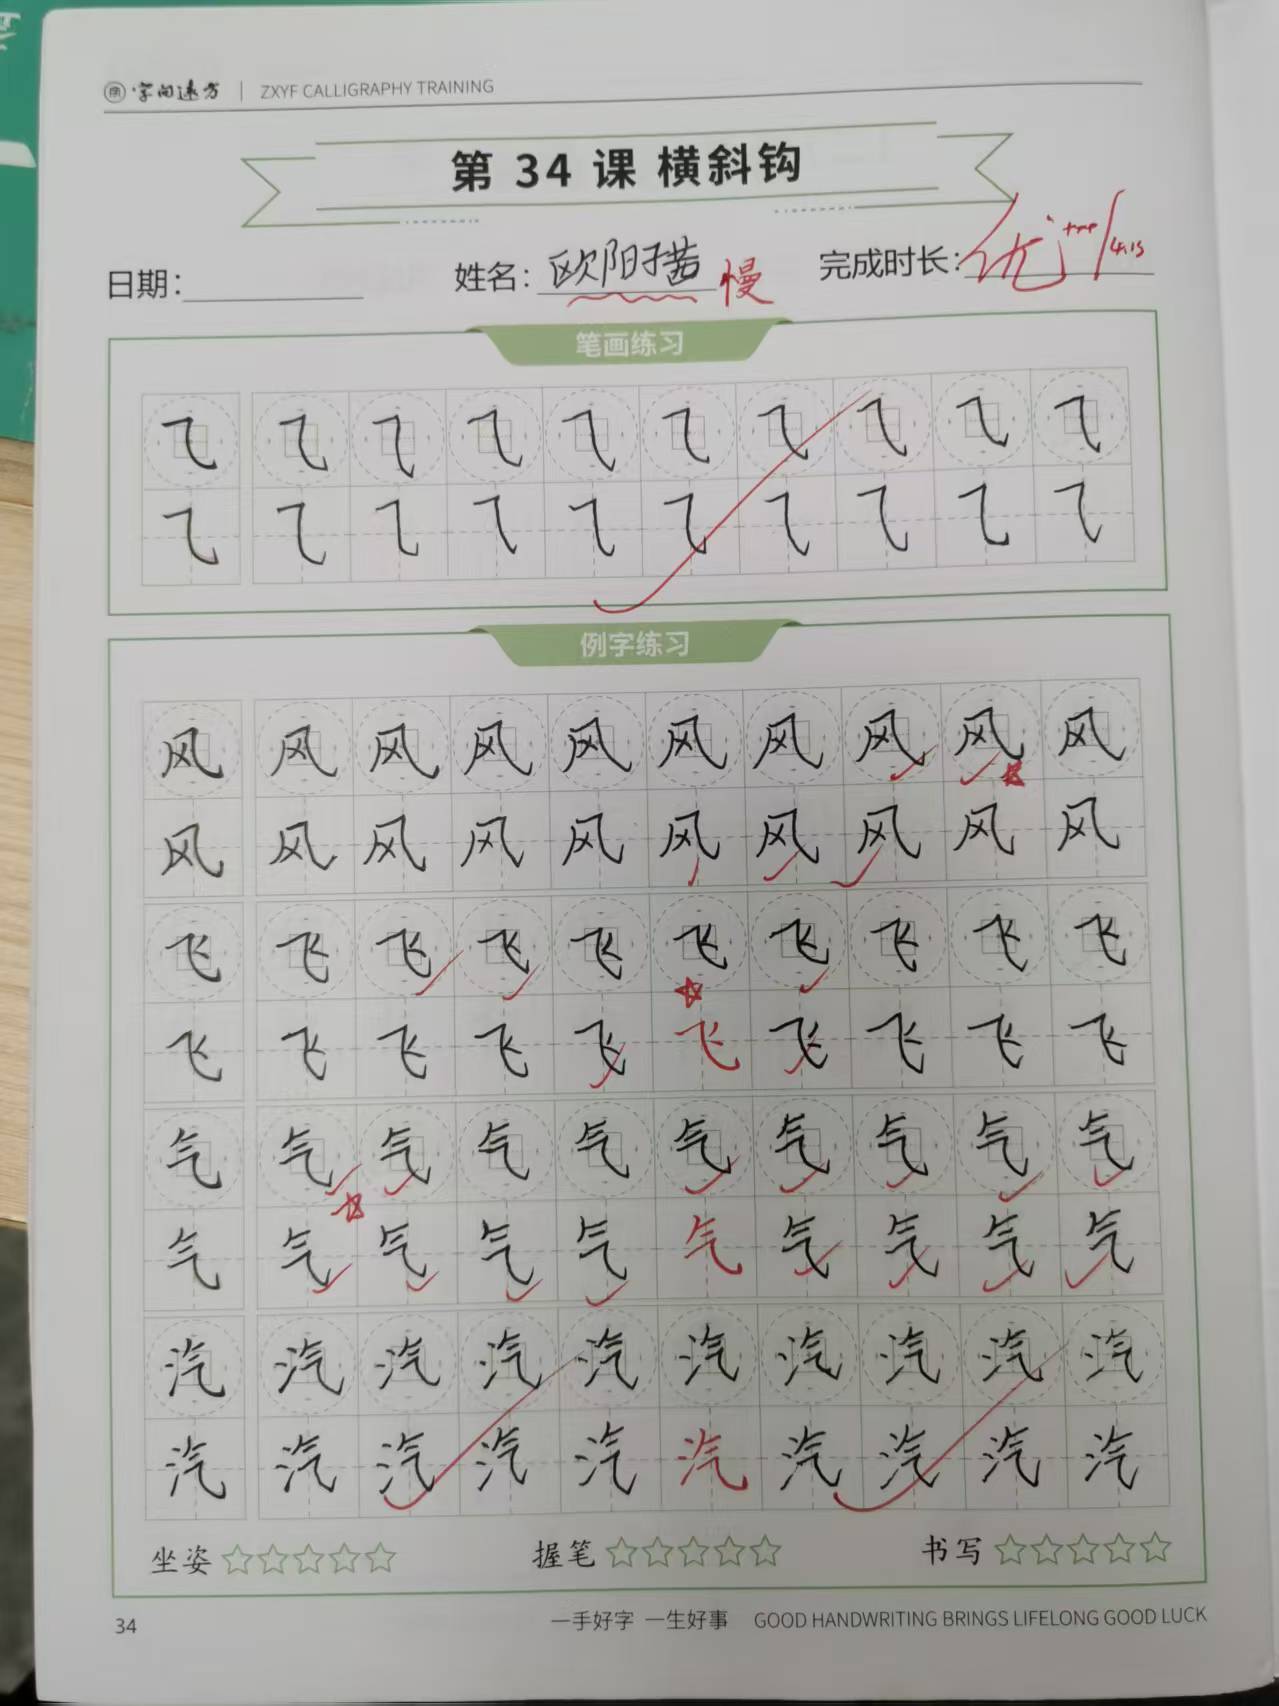 字向远方 | ZXYF CALLIGRAPHY TRAINING
第 34 课 横斜钩
日期: 姓名: 欧阳子茜 慢 完成时长: 优 4.15
笔画练习
例字练习
风 风 风 风 风 风 风 风 风 风
风 风 风 风 风 风 风 风 风 风
飞 飞 飞 飞 飞 飞 飞 飞 飞 飞
飞 飞 飞 飞 飞 飞 飞 飞 飞 飞
气 气 气 气 气 气 气 气 气 气
气 气 气 气 气 气 气 气 气 气
汽 汽 汽 汽 汽 汽 汽 汽 汽 汽
汽 汽 汽 汽 汽 汽 汽 汽 汽 汽
坐姿 握笔 书写
34 一手好字 一生好事 GOOD HANDWRITING BRINGS LIFELONG GOOD LUCK